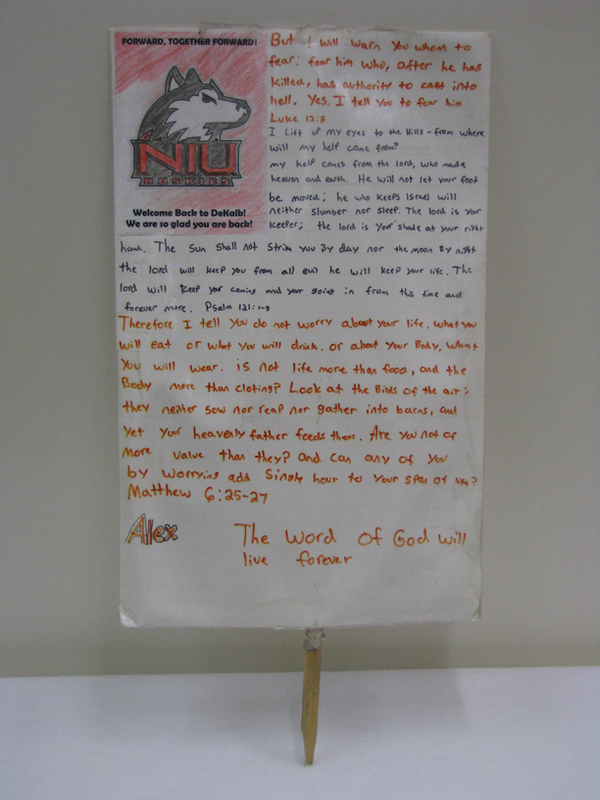 FORWARD, TOGETHER FORWARD!
NIU
HUSKIES
Welcome Back to DeKalb!
We are so glad you are back!
But I will warn you whom to
fear: fear him who, after he has
killed, has authority to cast into
hell. Yes, I tell you to fear him
Luke 12:5
I Lift up my eyes to the Hills - from where
will my help come from?
my help comes from the lord, who made
heaven and earth. He will not let your foot
be moved; he who keeps Israel will
neither slumber nor sleep. The lord is your
keeper; the lord is your shade at your right
hand. The sun shall not strike you By day nor the moon By night
the lord will keep you from all evil he will keep your life. The
lord will keep your coming and your going in from this time and
forever more. Psalm 121:1-8
Therefore I tell you do not worry about your life. what you
will eat or what you will drink. or about your Body, what
you will wear. is not life more than food, and the
Body more than cloting? Look at the Birds of the air;
they neither sow nor reap nor gather into barns, and
yet your heavenly father feeds them. Are you not of
more value than they? and can any of you
by worrying add single hour to your span of life?
Matthew 6:25-27
Alex
The word of God will
live forever